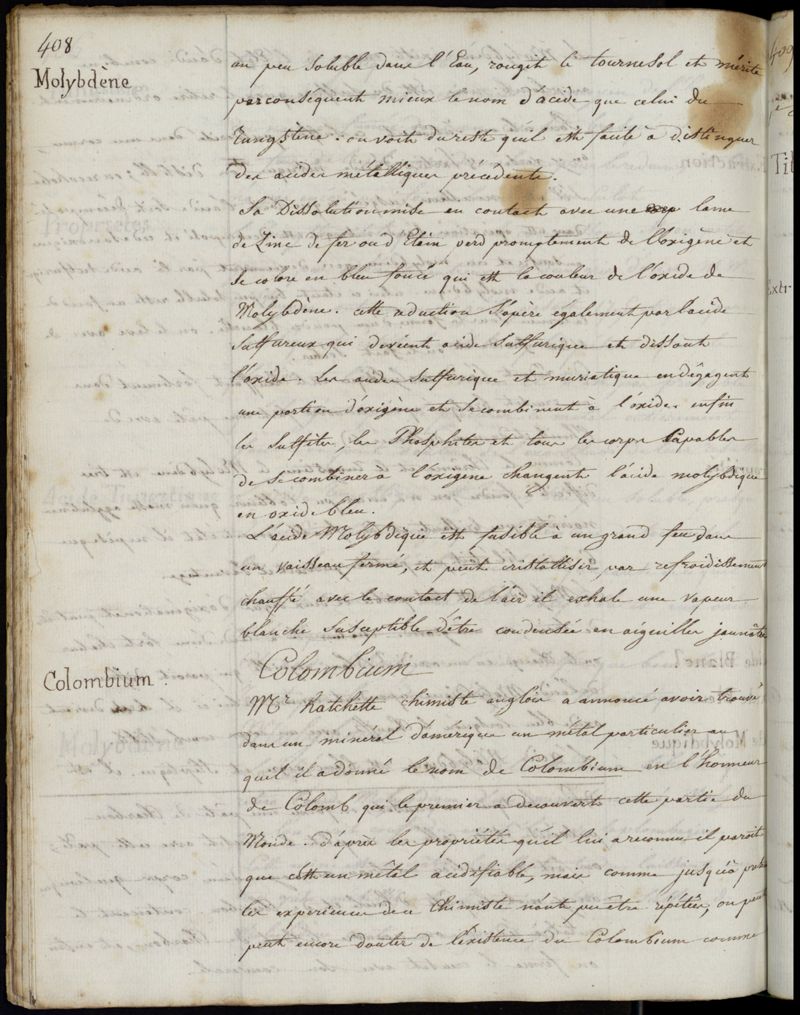 408
Molybdène
un peu soluble dans l'Eau, rougit le tournesol et mérite
par conséquent mieux le nom d'acide que celui du
Tungstène. on voit du reste quil est facile a distinguer
des acides métalliques précédents.
Sa Dissolution mise en contact avec une lame
de Zinc de fer ou d'Etain perd promptement de l'oxigène et
se colore en bleu foncé qui est la couleur de l'oxide de
Molybdène. cette réduction s'opère également par l'acide
sulfureux qui devient acide sulfurique et dissout
l'oxide. Les acides sulfurique et muriatique en dégagent
une portion d'oxigène et se combinent à l'oxide. enfin
les sulfites, les Phosphites et tous les corps Capables
de se combiner à l'oxigene changent l'acide molybdique
en oxide bleu.
L'acide Molybdique est fusible à un grand feu dans
un vaisseau fermé, et peut cristalliser par refroidissement
chauffé avec le contact de l'air il exhale une vapeur
blanche susceptible d'être condensée en aiguilles jaunâtres
Colombium.
Colombium
Mr. hatchette chimiste anglois a annoncé avoir trouvé
dans un minéral d'amerique un métal particulier au
quel il a donné le nom de Colombium en l'honneur
de Colomb qui le premier a decouvert cette partie du
Monde. d'après les propriétés qu'il lui a reconnu il paroit
que c'est un métal acidifiable, mais comme jusqu'à
les experiences de ce Chimiste n'ont pu être répétées, on peut
peut encore douter de l'existence du Colombium comme